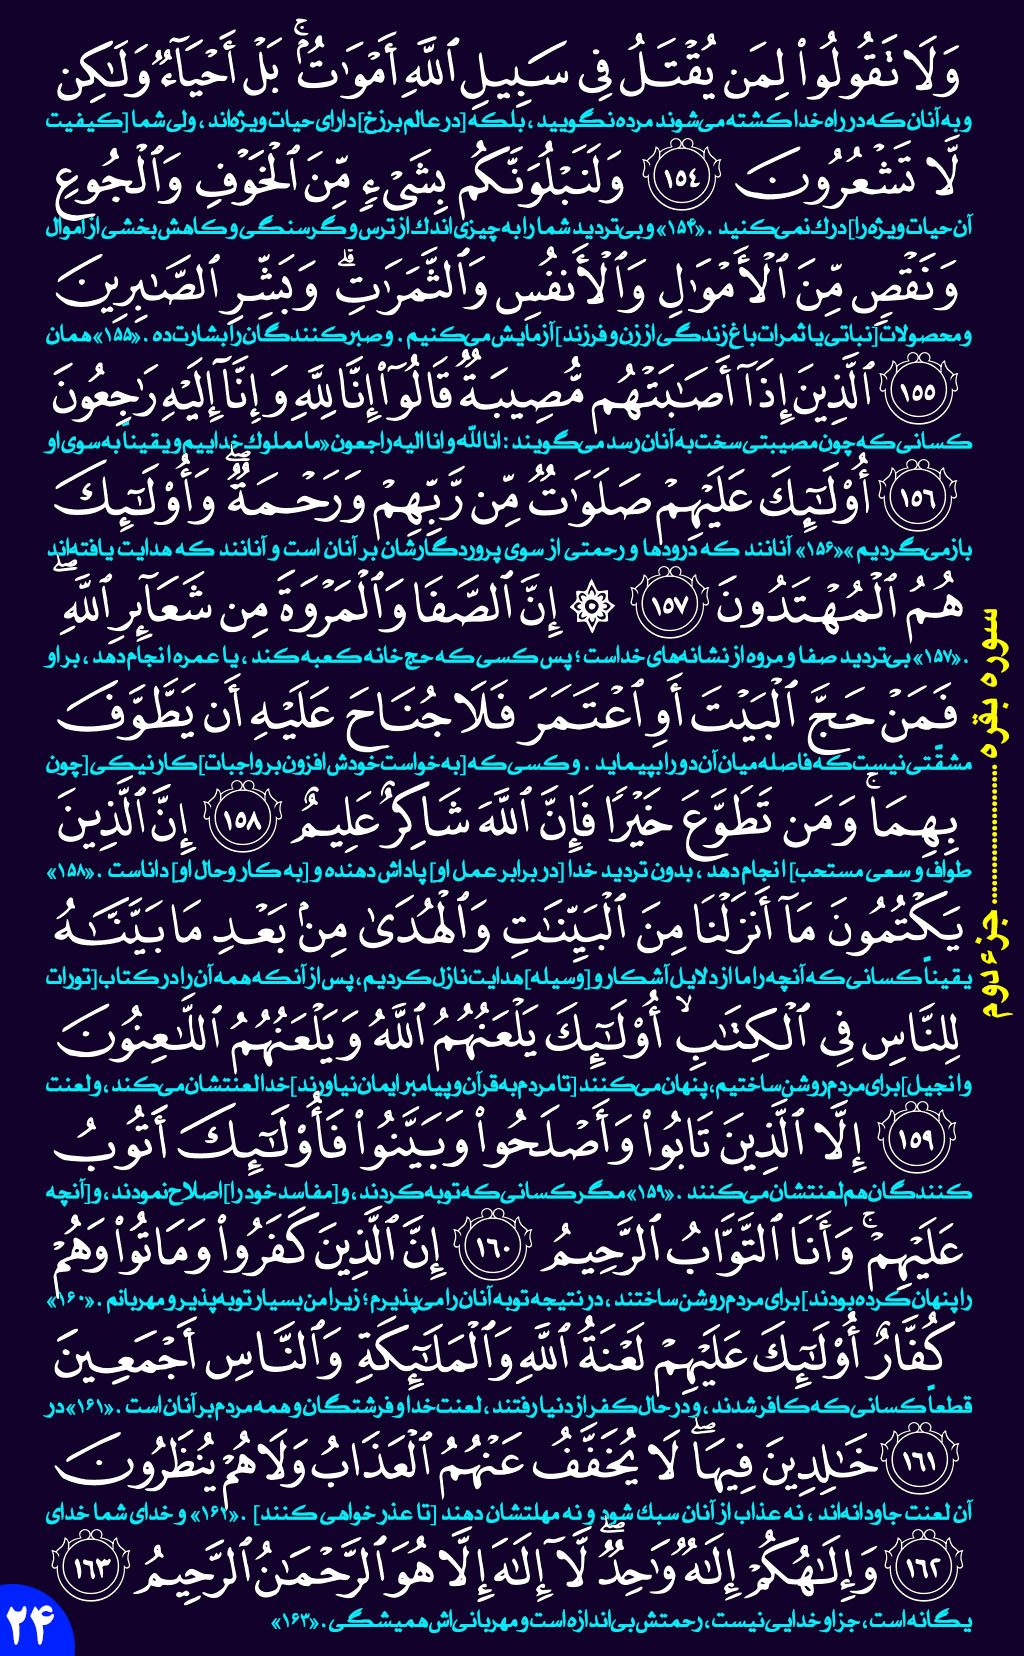 وَلَا تَقُولُوا۟ لِمَن يُقْتَلُ فِى سَبِيلِ ٱللَّهِ أَمْوَٰتٌۢ ۚ بَلْ أَحْيَآءٌ وَلَـٰكِن
و به آنان که در راه خدا کشته می‌شوند مرده نگویید ، بلکه [در عالم برزخ] دارای حیات ویژه‌اند ، ولی شما [کیفیت
لَّا تَشْعُرُونَ ﴿١٥٤﴾ وَلَنَبْلُوَنَّكُم بِشَىْءٍ مِّنَ ٱلْخَوْفِ وَٱلْجُوعِ
آن حیات ویژه را] درک نمی‌کنید . «۱۵۴» و بی‌تردید شما را به چیزی اندک از ترس و گرسنگی و کاهش بخشی از اموال
وَنَقْصٍ مِّنَ ٱلْأَمْوَٰلِ وَٱلْأَنفُسِ وَٱلثَّمَرَٰتِ ۗ وَبَشِّرِ ٱلصَّـٰبِرِينَ
و محصولات[نباتی یا ثمرات باغ زندگی از زن و فرزند] آزمایش می‌کنیم . و صبرکنندگان را بشارت ده . «۱۵۵» همان
﴿١٥٥﴾ ٱلَّذِينَ إِذَآ أَصَـٰبَتْهُم مُّصِيبَةٌ قَالُوٓا۟ إِنَّا لِلَّهِ وَإِنَّآ إِلَيْهِ رَٰجِعُونَ
کسانی که چون مصیبتی سخت به آنان رسد می‌گویند : انا لله و انا الیه راجعون «ما مملوک خداییم و یقیناً به سوی او
﴿١٥٦﴾ أُو۟لَـٰٓئِكَ عَلَيْهِمْ صَلَوَٰتٌ مِّن رَّبِّهِمْ وَرَحْمَةٌ ۖ وَأُو۟لَـٰٓئِكَ
بازمی‌گردیم »«۱۵۶» آنانند که درودها و رحمتی از سوی پروردگارشان بر آنان است و آنانند که هدایت یافته‌اند
هُمُ ٱلْمُهْتَدُونَ ﴿١٥٧﴾ ۞ إِنَّ ٱلصَّفَا وَٱلْمَرْوَةَ مِن شَعَآئِرِ ٱللَّهِ ۖ
. «۱۵۷» بی‌تردید صفا و مروه از نشانه‌های خداست ؛ پس کسی که حج خانه کعبه کند ، یا عمره انجام دهد ، بر او
فَمَنْ حَجَّ ٱلْبَيْتَ أَوِ ٱعْتَمَرَ فَلَا جُنَاحَ عَلَيْهِ أَن يَطَّوَّفَ
مشقّتی نیست که فاصله میان آن دو را بپیماید . و کسی که [به خواست خودش افزون بر واجبات] کار نیکی [چون
بِهِمَا ۚ وَمَن تَطَوَّعَ خَيْرًا فَإِنَّ ٱللَّهَ شَاكِرٌ عَلِيمٌ ﴿١٥٨﴾ إِنَّ ٱلَّذِينَ
طواف و سعی مستحب] انجام دهد ، بدون تردید خدا [در برابر عمل او] پاداش دهنده و [به کار و حال او] داناست . «۱۵۸»
يَكْتُمُونَ مَآ أَنزَلْنَا مِنَ ٱلْبَيِّنَـٰتِ وَٱلْهُدَىٰ مِنۢ بَعْدِ مَا بَيَّنَّـٰهُ
یقیناً کسانی که آنچه را ما از دلایل آشکار و [وسیله] هدایت نازل کردیم ، پس از آنکه همه آن را در کتاب[تورات
لِلنَّاسِ فِى ٱلْكِتَـٰبِ ۙ أُو۟لَـٰٓئِكَ يَلْعَنُهُمُ ٱللَّهُ وَيَلْعَنُهُمُ ٱللَّـٰعِنُونَ
و انجیل] برای مردم روشن ساختیم ، پنهان می‌کنند [تا مردم به قرآن و پیامبر ایمان نیاورند] خدا لعنتشان می‌کند ، و لعنت
﴿١٥٩﴾ إِلَّا ٱلَّذِينَ تَابُوا۟ وَأَصْلَحُوا۟ وَبَيَّنُوا۟ فَأُو۟لَـٰٓئِكَ أَتُوبُ
کنندگان هم لعنتشان می‌کنند . «۱۵۹» مگر کسانی که توبه کردند ، و[مفاسد خود را] اصلاح نمودند ، و[آنچه
عَلَيْهِمْ ۚ وَأَنَا ٱلتَّوَّابُ ٱلرَّحِيمُ ﴿١٦٠﴾ إِنَّ ٱلَّذِينَ كَفَرُوا۟ وَمَاتُوا۟ وَهُمْ
را پنهان کرده بودند] برای مردم روشن ساختند ، در نتیجه توبه آنان را می‌پذیرم ؛ زیرا من بسیار توبه‌پذیر و مهربانم . «۱۶۰»
كُفَّارٌ أُو۟لَـٰٓئِكَ عَلَيْهِمْ لَعْنَةُ ٱللَّهِ وَٱلْمَلَـٰٓئِكَةِ وَٱلنَّاسِ أَجْمَعِينَ
قطعاً کسانی که کافر شدند ، و در حال کفر از دنیا رفتند ، لعنت خدا و فرشتگان و همه مردم بر آنان است . «۱۶۱» در
﴿١٦١﴾ خَـٰلِدِينَ فِيهَا ۖ لَا يُخَفَّفُ عَنْهُمُ ٱلْعَذَابُ وَلَا هُمْ يُنظَرُونَ
آن لعنت جاودانه‌اند ، نه عذاب از آنان سبک شود و نه مهلتشان دهند [تا عذر خواهی کنند] . «۱۶۲» و خدای شما خدای
﴿١٦٢﴾ وَإِلَـٰهُكُمْ إِلَـٰهٌ وَٰحِدٌ ۖ لَّآ إِلَـٰهَ إِلَّا هُوَ ٱلرَّحْمَـٰنُ ٱلرَّحِيمُ ﴿١٦٣﴾
یگانه است ، جز او خدایی نیست ، رحمتش بی‌اندازه است و مهربانی‌اش همیشگی . «۱۶۳»
سوره بقره .......................... جزء دوم
۲۴